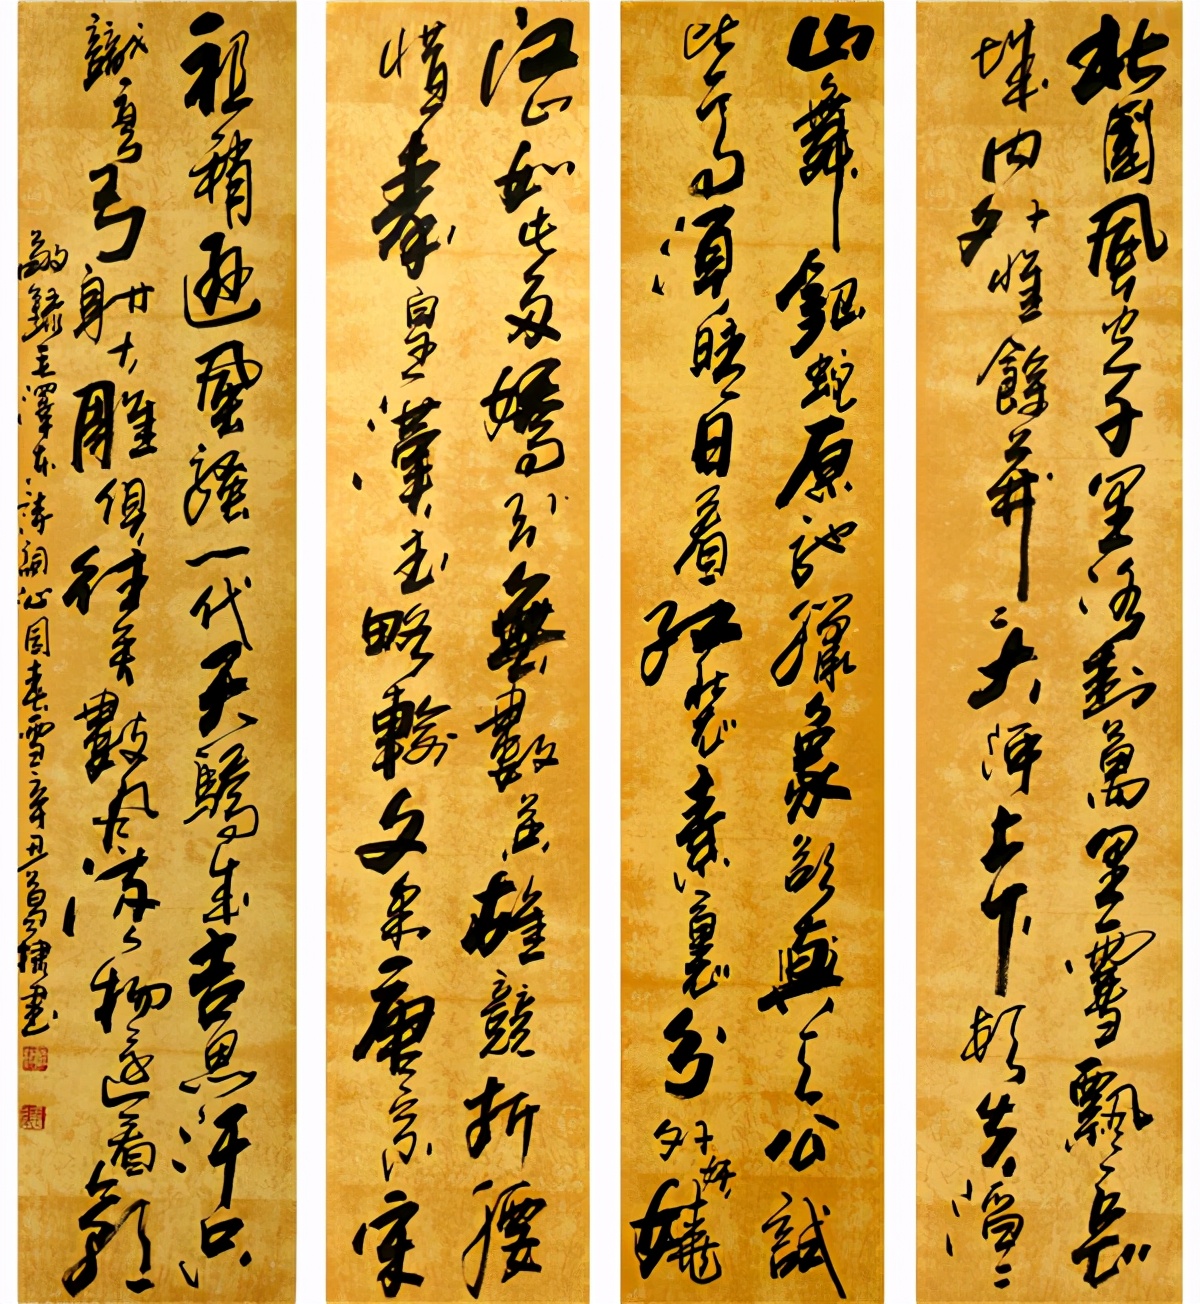 北國風光千里冰封萬里雪飄望長
城内外惟餘莽莽大河上下頓失滔滔
山舞銀蛇原馳臘象欲與天公試
比高須晴日看紅裝素裹分外妖嬈
江山如此多嬌引無數英雄競折腰
惜秦皇漢武略輸文采唐宗宋
祖稍遜風騷一代天驕成吉思汗只
識彎弓射大雕俱往矣數風流人物還看今朝
敬錄毛澤東詩詞沁園春雪辛丑葛棣書